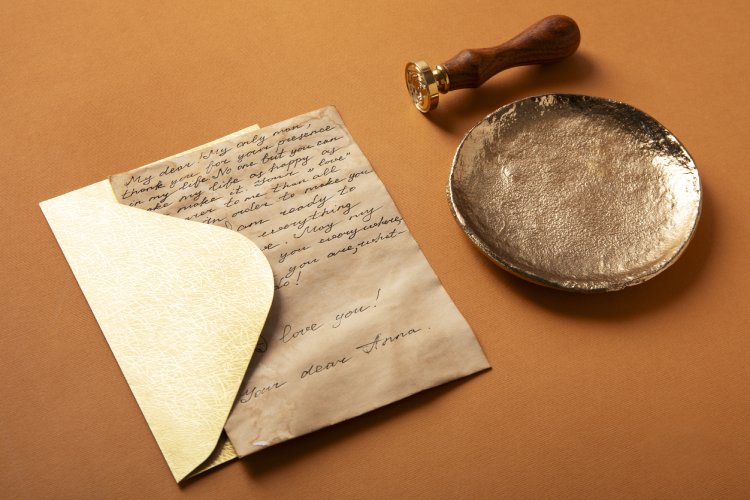 My dear. My only man,
thank you for your presence
in my life. No one but you can
make my life as happy as
you make it. Your "love"
than all
in order to make you
I am ready to
everything
. May my
you everywhere,
you are, what-
do!
I love you!
Your dear Anna.